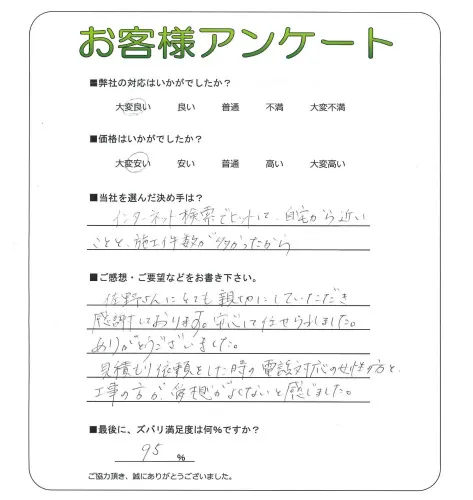 お客様アンケート
■弊社の対応はいかがでしたか？
大変良い 良い 普通 不満 大変不満
■価格はいかがでしたか？
大変安い 安い 普通 高い 大変高い
■当社を選んだ決め手は？
インターネット検索でヒットして、自宅から近い
ことと、施工件数が多かったから
■ご感想・ご要望などをお書き下さい。
佐野さんにとても親切にしていただき
感謝しております。安心して任せられました。
ありがとうございました。
見積もり依頼をした時の電話対応の女性の方と、
工事の方が、愛想がよくないと感じました。
■最後に、ズバリ満足度は何%ですか？
95 %
ご協力頂き、誠にありがとうございました。